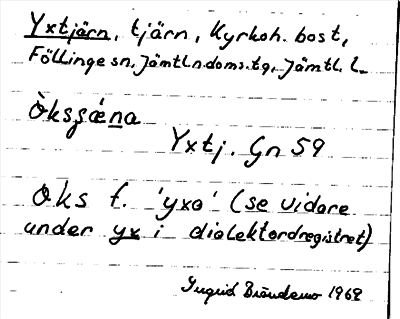 Yxtjärn, tjärn, Kyrkoh. bost,
Föllinge sn, Jämtl.n.doms.tg., Jämtl. l.
Yxtj. Gn 59
oks f. 'yxa' (se vidare
under yx i dialektordregistret)
Ingrid 1969